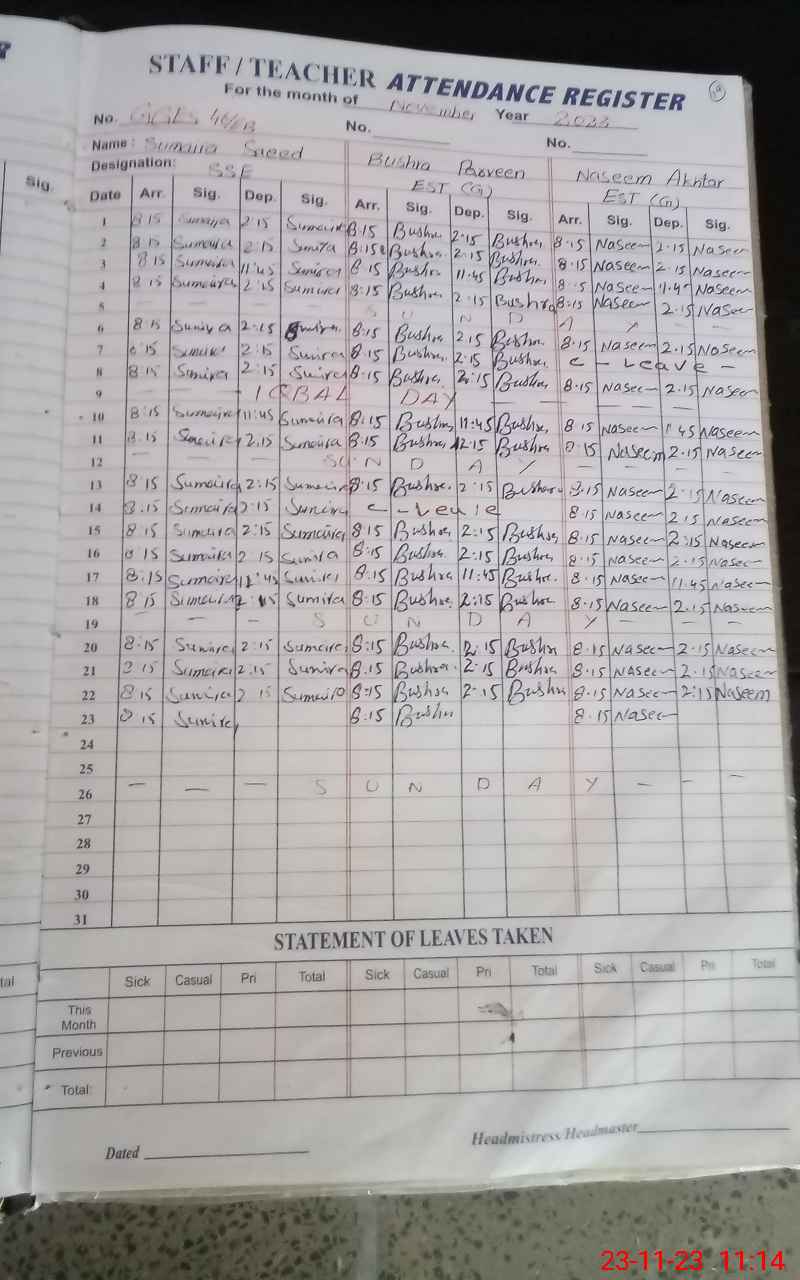 STAFF / TEACHER ATTENDANCE REGISTER
For the month of November Year 2023
No. No. No.
Name: Sumaira Saeed Bushra Parveen Naseem Akhtar
Designation: SSE EST (G) EST (G)
Sig. Date Arr. Sig. Dep. Sig. Arr. Sig. Dep. Sig. Arr. Sig. Dep. Sig.
1 8 15 Sumaira 2:15 Sumaira 8:15 Bushra 2:15 Bushra 8:15 Naseem 2:15 Naseem
2 8 15 Sumaira 2:15 8:15 Bushra 2:15 Bushra 8:15 Naseem 2:15 Naseem
3 8 15 Sumaira 11:45 8:15 Bushra 11:45 Bushra 8:15 Naseem 11:45 Naseem
4 8 15 Sumaira 2:15 Sumaira 8:15 Bushra 2:15 Bushra 8:15 Naseem 2:15 Naseem
5 S U N D A Y - -
6 8 15 2:15 8:15 Bushra 2:15 Bushra 8:15 Naseem 2:15 Naseem
7 8 15 2:15 8:15 Bushra 2:15 Bushra C - Leave -
8 8 15 2:15 8:15 Bushra 2:15 Bushra 8:15 Naseem 2:15 Naseem
9 - - IQBAL DAY - - - -
10 8:15 Sumaira 11:45 Sumaira 8:15 Bushra 11:45 Bushra 8:15 Naseem 1:45 Naseem
11 8:15 Sumaira 2:15 Sumaira 8:15 Bushra 2:15 Bushra 8:15 Naseem 2:15 Naseem
12 - - - SUN D A Y - - - -
13 8 15 Sumaira 2:15 Sumaira 8:15 Bushra 2:15 Bushra 8:15 Naseem 2:15 Naseem
14 8:15 Sumaira 2:15 C - Leave 8 15 Naseem 2:15 Naseem
15 8 15 Sumaira 2:15 Sumaira 8:15 Bushra 2:15 Bushra 8:15 Naseem 2:15 Naseem
16 8 15 Sumaira 2:15 8:15 Bushra 2:15 Bushra 8:15 Naseem 2:15 Naseem
17 8:15 Sumaira 11:45 8:15 Bushra 11:45 Bushra 8:15 Naseem 11:45 Naseem
18 8 15 Sumaira 2:15 8:15 Bushra 2:15 Bushra 8:15 Naseem 2:15 Naseem
19 - - - S U N D A Y - - -
20 8:15 2:15 Sumaira 8:15 Bushra 2:15 Bushra 8:15 Naseem 2:15 Naseem
21 8 15 Sumaira 2:15 8:15 Bushra 2:15 Bushra 8:15 Naseem 2:15 Naseem
22 8 15 2 15 Sumaira 8:15 Bushra 2:15 Bushra 8:15 Naseem 2:15 Naseem
23 8 15 8:15 Bushra 8:15 Naseem
24
25
26 - - - S U N D A Y - - -
27
28
29
30
31
STATEMENT OF LEAVES TAKEN
Sick Casual Pri Total Sick Casual Pri Total Sick Casual Pri Total
This Month
Previous
Total:
Dated Headmistress/Headmaster
23-11-23 11:14